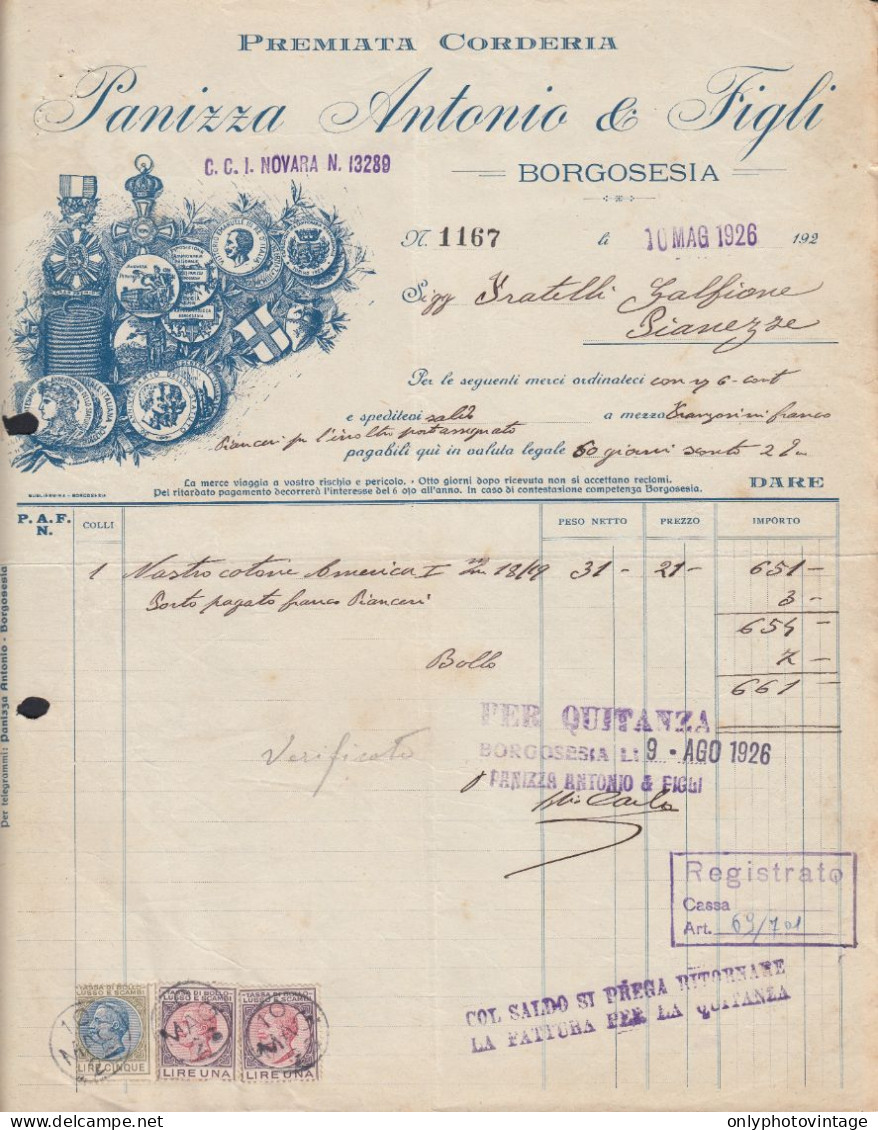 PREMIATA CORDERIA
Panizza Antonio & Figli
C. C. I. NOVARA N. 13289
BORGOSESIA
N. 1167 li 10 MAG 1926 192
Sigg Fratelli
Pianezze
Per le seguenti merci ordinateci
e spediteci saldo a mezzo franco
Pianceri per l'inoltro portassegnato
pagabili quì in valuta legale 60 giorni sconto 2
La merce viaggia a vostro rischio e pericolo. - Otto giorni dopo ricevuta non si accettano reclami.
Pel ritardato pagamento decorrerà l'interesse del 6 o|o all'anno. In caso di contestazione competenza Borgosesia.
DARE
P. A. F. N. COLLI PESO NETTO PREZZO IMPORTO
1 Nastro cotone America I 18/19 31 - 21 - 651 -
Porto pagato franco Pianceri 3 -
654 -
Bollo 7 -
661 -
PER QUITANZA
Verificato
BORGOSESIA LI 9 - AGO 1926
PANIZZA ANTONIO & FIGLI
Per telegrammi: Panizza Antonio - Borgosesia
Registrato
Cassa
Art. 69/701
COL SALDO SI PREGA RITORNARE
LA FATTURA PER LA QUITANZA
TASSA DI BOLLO
LUSSO E SCAMBI
LIRE CINQUE
TASSA DI BOLLO
LUSSO E SCAMBI
LIRE UNA
TASSA DI BOLLO
LUSSO E SCAMBI
LIRE UNA
www.delcampe.net
onlyphotovintage